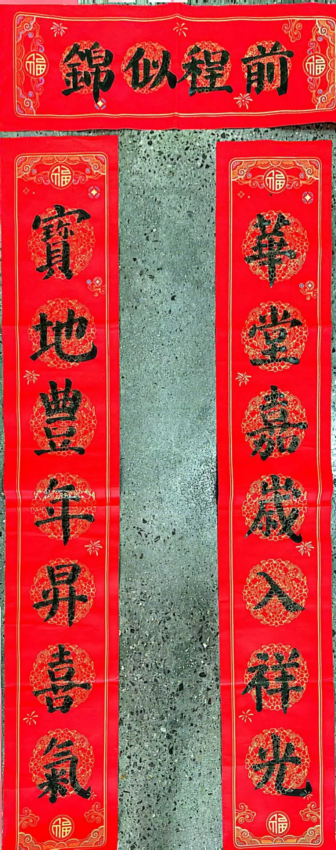 前程似錦
華堂嘉歲入祥光
寶地豐年昇喜氣
福
福
福
福
福
福